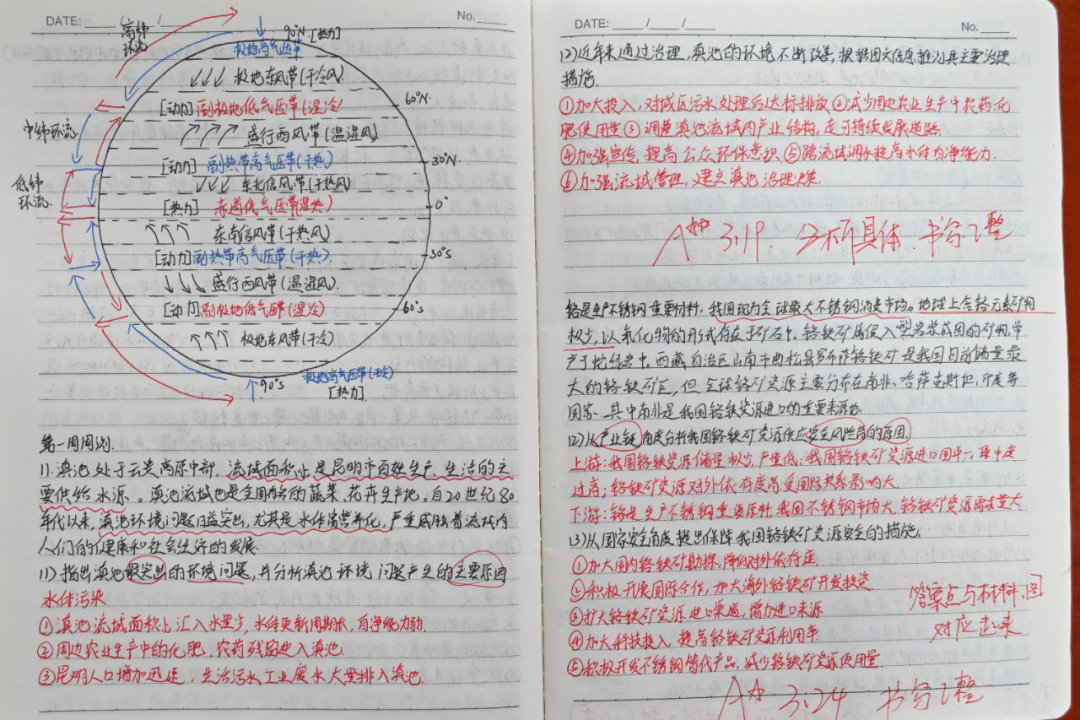 DATE: ___/___/___
No.___
高纬
环流
90°N
[热力]
极地高气压带
极地东风带(干冷风)
60°N
[动力]副极地低气压带(湿冷)
中纬环流
盛行西风带(温湿风)
30°N
[动力]副热带高气压带(干热)
低纬
环流
东北信风带(干热风)
[热力]赤道低气压带(湿热)
0°
东南信风带(干热风)
[动力]副热带高气压带(干热)
30°S
盛行西风带(温湿风)
[动力]副极地低气压带(湿冷)
60°S
极地东风带(干冷)
90°S
极地高气压带(干冷)
[热力]
第一周周测
11.滇池处于云贵高原中部,流域面积小,是昆明市百姓生产、生活的主
要供给水源。滇池流域也是全国有名的蔬菜、花卉生产地。自20世纪80
年代以来,滇池环境问题日益突出,尤其是水体富营养化,严重威胁着流域内
人们的健康和社会经济的发展.
(1)指出滇池最突出的环境问题,并分析滇池环境问题产生的主要原因
水体污染
①滇池流域面积小,汇入水量少,水体更新周期长,自净能力弱.
②周边农业生产中的化肥、农药残留进入滇池
③昆明人口增加迅速,生活污水、工业废水大量排入滇池.
DATE: ___/___/___
No.___
(2)近年来通过治理,滇池的环境不断改善,根据图文信息推测其主要治理
措施.
①加大投入,对城区污水处理后达标排放②减少周边农业生产中农药化
肥使用量③调整滇池流域内产业结构,走可持续发展道路
④加强宣传,提高公众环保意识.⑤跨流域调水提高水体自净能力.
⑥加强流域管理,建立滇池治理决策.
3.19. 分析具体.书写工整
铬是生产不锈钢重要材料,我国现为全球最大不锈钢消费市场。地球上含铬元素矿物
极少,以氧化物的形式存在于矿石中,铬铁矿属侵入型岩浆成因的矿物,常
产于橄榄岩中。西藏自治区山南市曲松县罗布莎铬铁矿是我国目前储量最
大的铬铁矿区,但全球铬矿资源主要分布在南非、哈萨克斯坦、印度等
国家.其中南非是我国铬铁资源进口的重要来源地.
(2)从产业链角度分析我国铬铁矿资源供应安全风险高的原因.
上游:我国铬铁资源储量极少,产量低;我国铬铁矿资源进口国单一,集中度
过高;铬铁矿资源对外依存度高受国际关系影响大
下游:铬是生产不锈钢重要原料,我国不锈钢市场大,铬铁矿资源需求量大
(3)从国家安全角度,提出保障我国铬铁矿资源安全的措施.
①加大国内铬铁矿勘探,降低对外依存度
②积极开展国际合作,加大海外铬铁矿开发投资
③扩大铬铁矿资源进口渠道,增加进口来源
④加大科技投入,提高铬铁矿资源利用率
⑤积极开发不锈钢替代产品,减少铬铁矿资源使用量.
答案点与材料、图
对应起来
3.24 书写工整